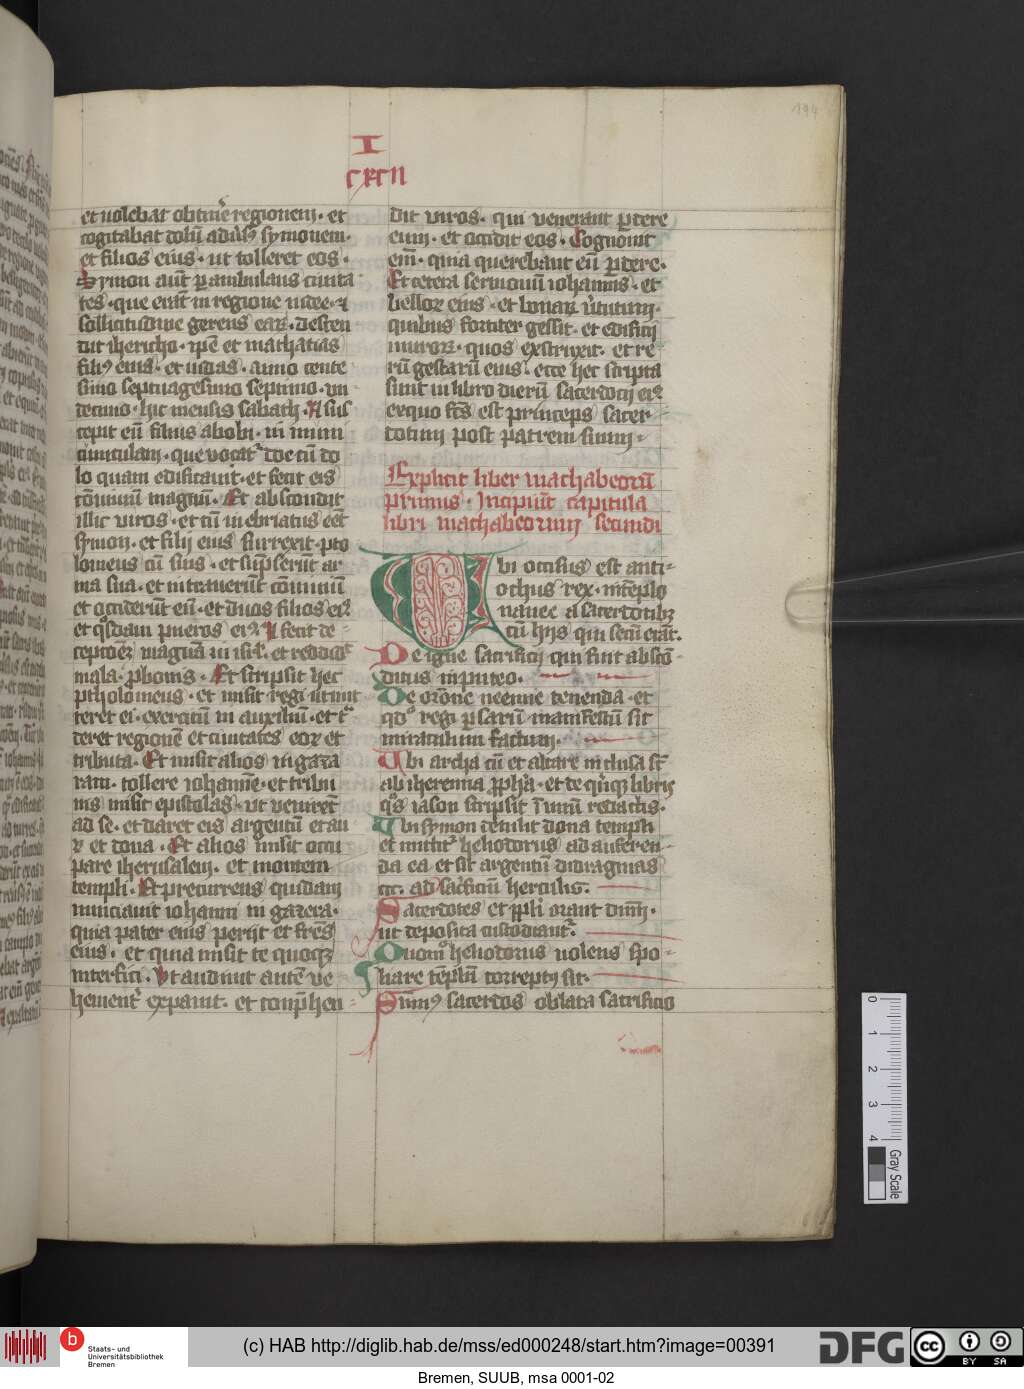 194
I
cxcii
et uolebat obtinẽ regionem · et
cogitabat dolũ adũsꝰ symonem ·
et filios eius · ut tolleret eos ·
Symon aut̃ pambulans ciuita
tes · que erãt in regione iudee · ⁊
sollicitudinẽ gerens eaꝝ · descen
dit ihericho · ip̃e et mathatias
filiꝰ eius · et iudas · anno cente
simo septuagesimo septimo · vn
decimo · hic mensis sabath · Et sus
cepit eũ filius abobi · in muni
tiunculam · que vocat᷑ doc cũ do
lo quam edificauit · et fecit eis
cõuiuiũ magnũ · Et abscondit
illic viros · et cũ inebriatus eẽt
symon · et filij eius surrexit · pto
lomeus cũ suis · et sũpserũt ar
ma sua · et intrauerũt cõuiuiũ
et occiderũt eũ · et duos filios eiꝰ
et q̃sdam pueros eiꝰ Et fecit de
ceptõeʒ magnã in isrl̃ · et reddidᷓ
mala · p bonis · Et scripsit hec
ptholomeus · et misit regi ut mit
teret ei · exercitũ in auxiliũ · et tᷓ
deret regionẽ et ciuitates eoꝝ et
tributa · Et misit alios in gaza
ram · tollere iohannẽ · et tribu
nis misit epistolas · vt venirẽt
ad se · et daret eis argentũ et au
ꝝ et dona · Et alios misit occu
pare iherusalem · et montem
templi · Et precurrens quidam
nunciauit iohanni in gazera ·
quia pater eius perijt et frẽs
eius · et quia misit te quoqʒ
interfici · Vt audiuit autẽ ve
hement᷑ expauit · et cõp̃hen
dit viros · qui venerant ꝑdere
eum · et occidit eos · Cognouit
em̃ · quia querebant eũ ꝑdere ·
Et cetera sermonũ iohannis · et
belloꝝ eius · et bonaꝝ ũtutum ·
quibus fortiter gessit · et edificij
muroꝝ · quos exstruxit · et re
rũ gestarũ eius · ecce hec scripta
sunt in libro dierũ sacerdocij eiꝰ
exquo fc̃s est princeps sacer
dotum post patrem suum ·
Explicit liber machabeorũ
primus · Incipiũt capitula
libri machabeorum secundi
Ubi occisus est anti
ochus rex · in tẽplo
nanee a sacerdotibʒ
cũ hijs qui secũ erãt ·
De igne sacrificij qui fuit abscõ
ditus in puteo ·
De orõne neemie tenenda · et
qdᷓ regi ꝑsarũ manifestũ sit
miraculum factum ·
Ubi archa cũ et altare inclusa sᷓt
ab iheremia ꝓph̃a · et de qiqʒ libris
qᷓs iason scripsit ĩ unũ redactis ·
Ubi symon detulit dona templi
et mittit᷑ heliodorus ad auferen
da ea et sit argentũ didragmas
cccᷓ · ad sac̃ficiũ herculis ·
Sacerdotes et ppl̃i orant dñm ·
ut deposita custodiant᷑ ·
Quomᵒ heliodorus uolens spo
liare tẽplũ correptꝰ sit ·
Sum̃ꝰ sacerdos oblata sacrificio
0
1
2
3
4
Gray Scale
b
Staats- und
Universitätsbibliothek
Bremen
(c) HAB http://diglib.hab.de/mss/ed000248/start.htm?image=00391
DFG
cc
BY SA
Bremen, SUUB, msa 0001-02